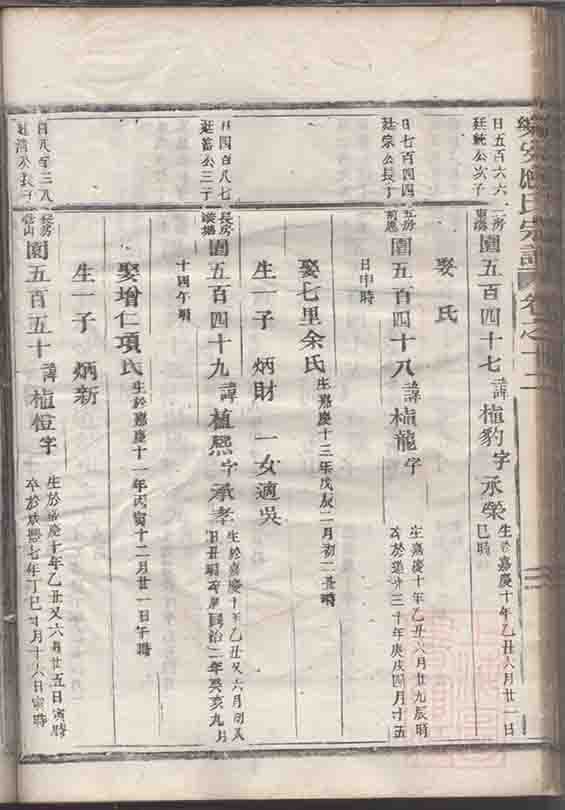 氏宗譜 卷之十二
日五百六六二房
廷統公次子
圜五百四十七諱植豹字承榮
生於嘉慶十年乙丑六月廿一日
巳時
娶 氏
日七百四四五房
廷宗公長子
圜五百四十八諱植龍字
生嘉慶十年乙丑六月廿九辰時
卒於道光三十年庚戌四月十五
日申時
娶七里余氏生嘉慶十三年戊辰二月初二丑時
生一子 炳財 一女適吳
日四百八七長房
廷蓄公三子
圜五百四十九諱植熙字承孝
生於嘉慶十年乙丑又六月初八
日丑時卒於同治二年癸亥九月
十四午時
娶增仁項氏生於嘉慶十一年丙寅十二月廿一日午時
生一子 炳新
日八百三八長房
廷清公長子
圜五百五十諱植 字
生於嘉慶十年乙丑又六月廿五日寅時
卒於咸豐七年丁巳 月十六日寅時